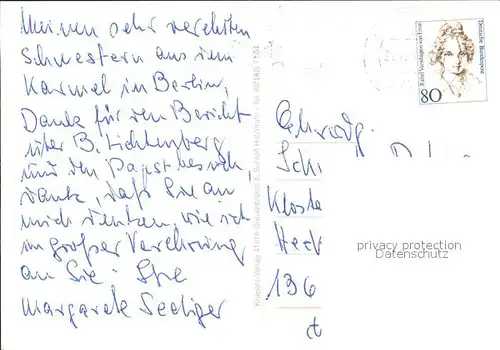 Meinen sehr verehrten
Schwestern aus dem
Karmel in Berlin,
Danke für den Bericht
über B. Lichtenberg
und den Papstbesuch
danke, daß Sie an
mich denken, wie ich
in großer Verehrung
an Sie. Ihre
Margarete Seeliger
Rahel Varnhagen von Ense
Deutsche Bundespost
80
Ehrwdg.
Klost
136
privacy protection
Datenschutz